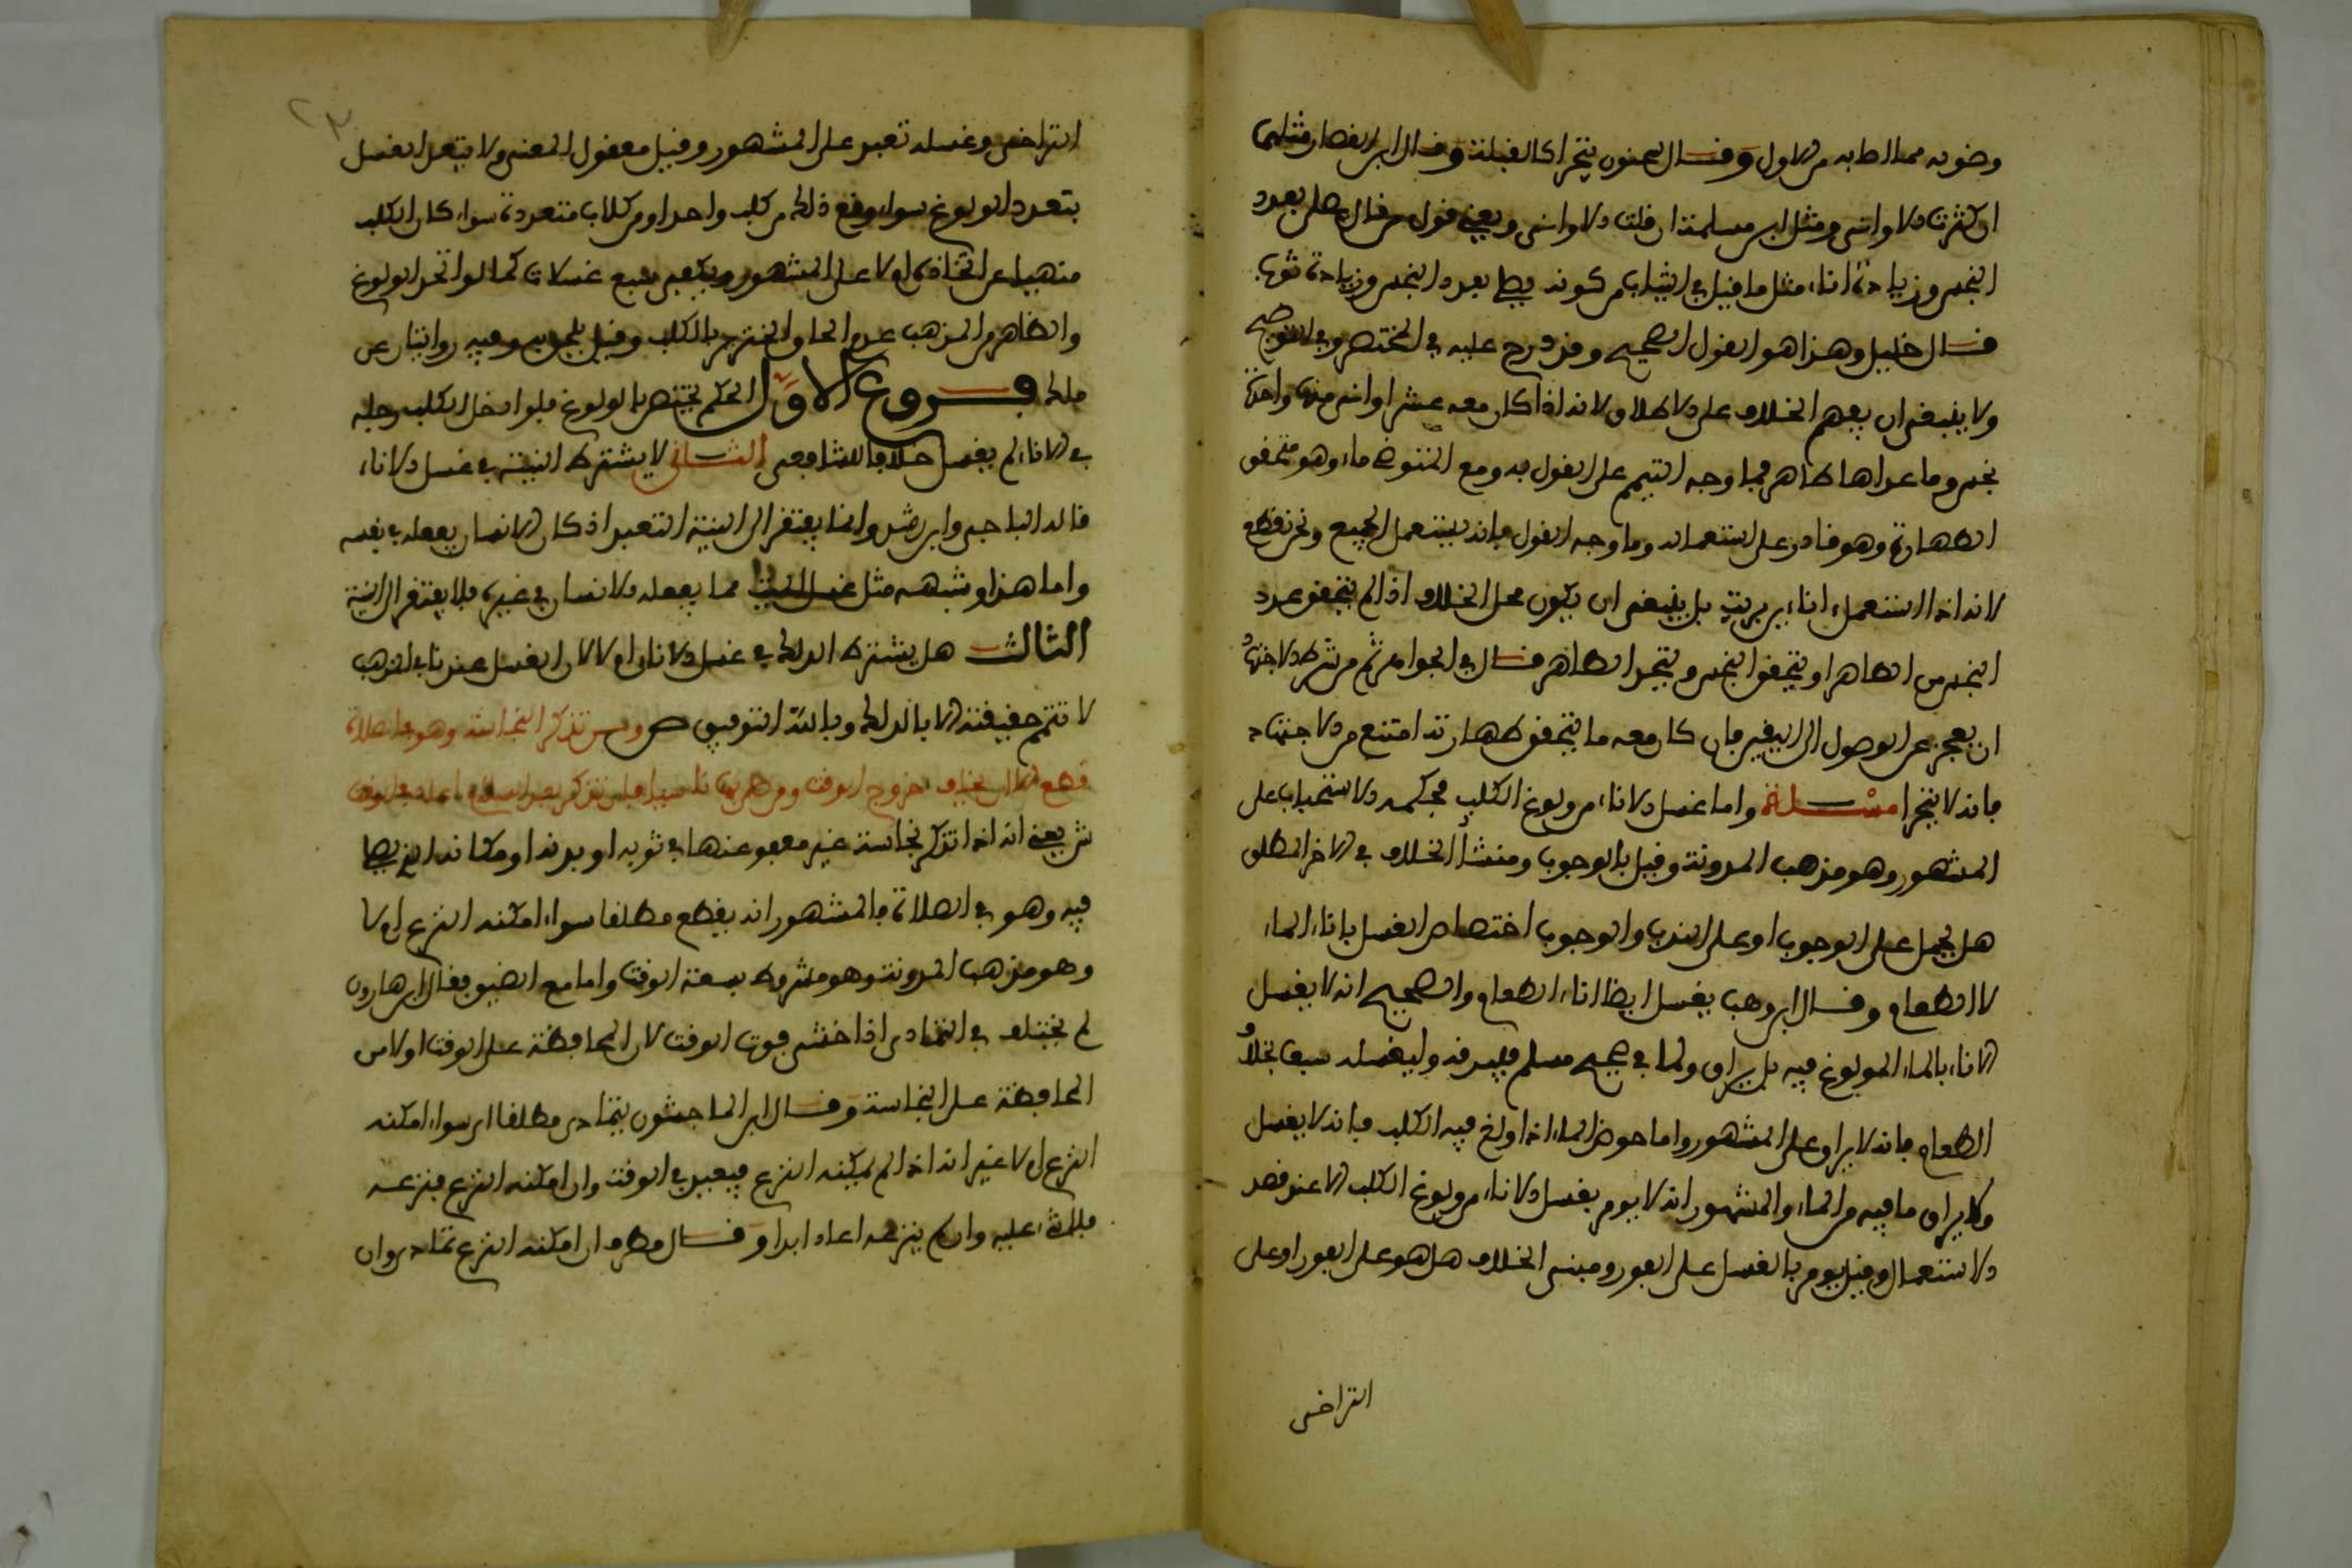 وضوء به مما اصابه من الاول وقال سحنون يتحرا كالقبلة وقال ابن القصار مثلهما
ان كثرت الاواني ومثل ابن مسلمة ان قلت الاواني ويعني بقول من قال يصلي بعدد
النجس وزيادة اناء مثل ما قيل في الثياب من كونه يصلي بعدد النجس وزيادة ثوب
قال خليل وهذا هو القول الصحيح وقد درج عليه في المختصر وفي التوضيح
ولا ينبغي ان يفهم الخلاف على الاطلاق لانه اذا كان معه عشر اواني منها واحدة
نجس وما عداها طاهر فما وجه التيمم على القول به ومع المتوضئ ماء وهو متحقق
الطهارة وهو قادر على استعماله وما وجه القول بانه يستعمل الجميع ونحن نقطع
لانه اذا استعمل اناءين بريت بل ينبغي ان يكون محل الخلاف اذا لم يتحقق عدد
النجس من الطاهر او يتحقق النجس ويتحد الطاهر قال في الجواهر ثم من شرط الاجتهاد
ان يعجز عن الوصول الى اليقين فان كان معه ما يتحقق طهارته امتنع من الاجتهاد
فانه لا يتحرا مسئلة واما غسل الاناء من ولوغ الكلب فحكمه الاستحباب على
المشهور وهو مذهب المدونة وقيل بالوجوب ومنشأ الخلاف في الامر المطلق
هل يحمل على الوجوب او على الندب والوجوب اختصاص الغسل باناء الماء
لا الطعام وقال ابن وهب يغسل ايضا اناء الطعام والصحيح انه لا يغسل
الاناء بالماء المولوغ فيه بل يراق ولما في صحيح مسلم فليرقه وليغسله سبعا بخلاف
الطعام فانه لا يراق على المشهور واما حوض الماء اذا ولغ فيه الكلب فانه لا يغسل
ولا يراق ما فيه من الماء والمشهور انه لا يومر بغسل الاناء من ولوغ الكلب الا عند قصد
الاستعمال وقيل يومر بالغسل على الفور ومبنى الخلاف هل هو على الفور او على
التراخي
٢٣
التراخي وغسله تعبد على المشهور وقيل معقول المعنى ولا يتعدد الغسل
بتعدد الولوغ سواء وقع ذلك من كلب واحد او من كلاب متعددة سواء كان الكلب
منهيا عن اتخاذه ام لا على المشهور ويكفي سبع غسلات كما لو اتحد الولوغ
والظاهر من المذهب عدم الحاق الخنزير بالكلب وقيل يلحق به وفيه روايتان عن
ملك فروع الاول الحكم يختص بالولوغ فلو ادخل الكلب رجله
في الاناء لم يغسل خلافا للشافعي الثاني لا يشترط النية في غسل الاناء
قاله الباجي وابن رشد وانما يفتقر الى النية التعبد اذ كان الانسان يفعله في نفسه
واما هذا وشبهه مثل غسل الميت مما يفعله الانسان في غيره فلا يفتقر الى النية
الثالث هل يشترط الدلك في غسل الاناء ام لا لان الغسل عندنا في المذهب
لا تتم حقيقته الا بالدلك وبالله التوفيق ص ومن تذكر النجاسة وهو في الصلاة
قطع الا ان يخاف خروج الوقت ومن صلى بها ناسيا فان تذكر بعد السلام اعاد في الوقت
ش يعني انه اذا تذكر نجاسة غير معفو عنها في ثوبه او بدنه او مكانه الذي يصلي
فيه وهو في الصلاة فالمشهور انه يقطع مطلقا سواء امكنه النزع ام لا
وهو مذهب المدونة وهو مشروط بسعة الوقت واما مع الضيق فقال ابن هارون
لم يختلف في التمادي اذا خشي فوت الوقت لان المحافظة على الوقت اولا من
المحافظة على النجاسة وقال ابن الماجشون يتمادى مطلقا اي سواء امكنه
النزع ام لا غير انه اذا لم يمكنه النزع فيعيد في الوقت وان امكنه النزع فنزعه
فلا شيء عليه وان لم ينزعه اعاد ابدا وقال مطرف ان امكنه النزع تمادى وان